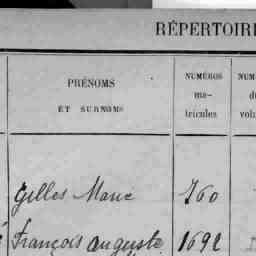 RÉPERTOIRE
PRÉNOMS
ET SURNOMS
NUMÉROS
ma-
tricules
Gilles Marie 760
François Auguste 1692